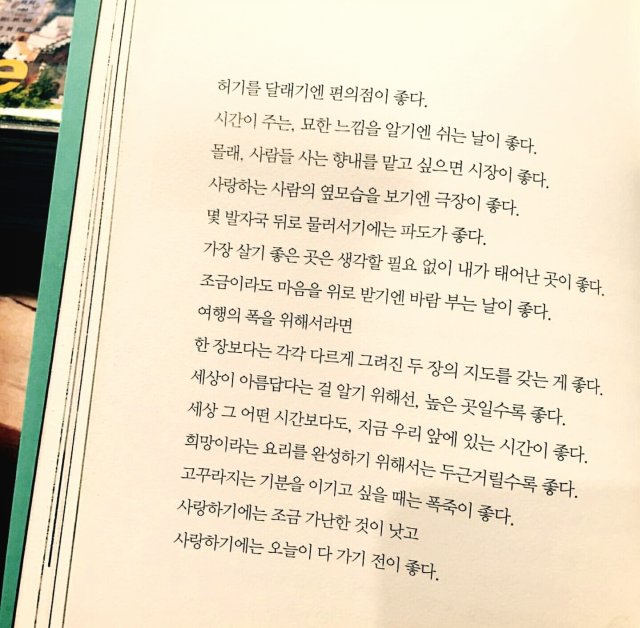 허기를 달래기엔 편의점이 좋다.
시간이 주는, 묘한 느낌을 알기엔 쉬는 날이 좋다.
몰래, 사람들 사는 향내를 맡고 싶으면 시장이 좋다.
사랑하는 사람의 옆모습을 보기엔 극장이 좋다.
몇 발자국 뒤로 물러서기에는 파도가 좋다.
가장 살기 좋은 곳은 생각할 필요 없이 내가 태어난 곳이 좋다.
조금이라도 마음을 위로 받기엔 바람 부는 날이 좋다.
여행의 폭을 위해서라면
한 장보다는 각각 다르게 그려진 두 장의 지도를 갖는 게 좋다.
세상이 아름답다는 걸 알기 위해선, 높은 곳일수록 좋다.
세상 그 어떤 시간보다도, 지금 우리 앞에 있는 시간이 좋다.
희망이라는 요리를 완성하기 위해서는 두근거릴수록 좋다.
고꾸라지는 기분을 이기고 싶을 때는 폭죽이 좋다.
사랑하기에는 조금 가난한 것이 낫고
사랑하기에는 오늘이 다 가기 전이 좋다.